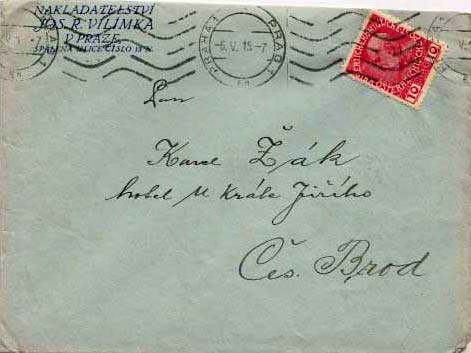 NAKLADATELSTVÍ
JOS. R. VILÍMKA
V PRAZE,
ULICE ČÍSLO
PRAHA 1 PRAG 1
6. V. 15 - 7
10 10
Pan
Karel Žák
hotel U Krále Jiřího
Čes. Brod